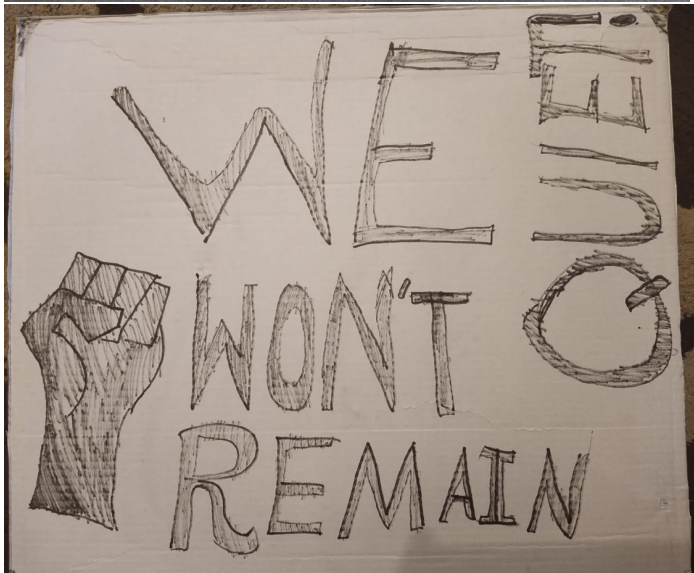 WE
WON'T
REMAIN
QUIET!